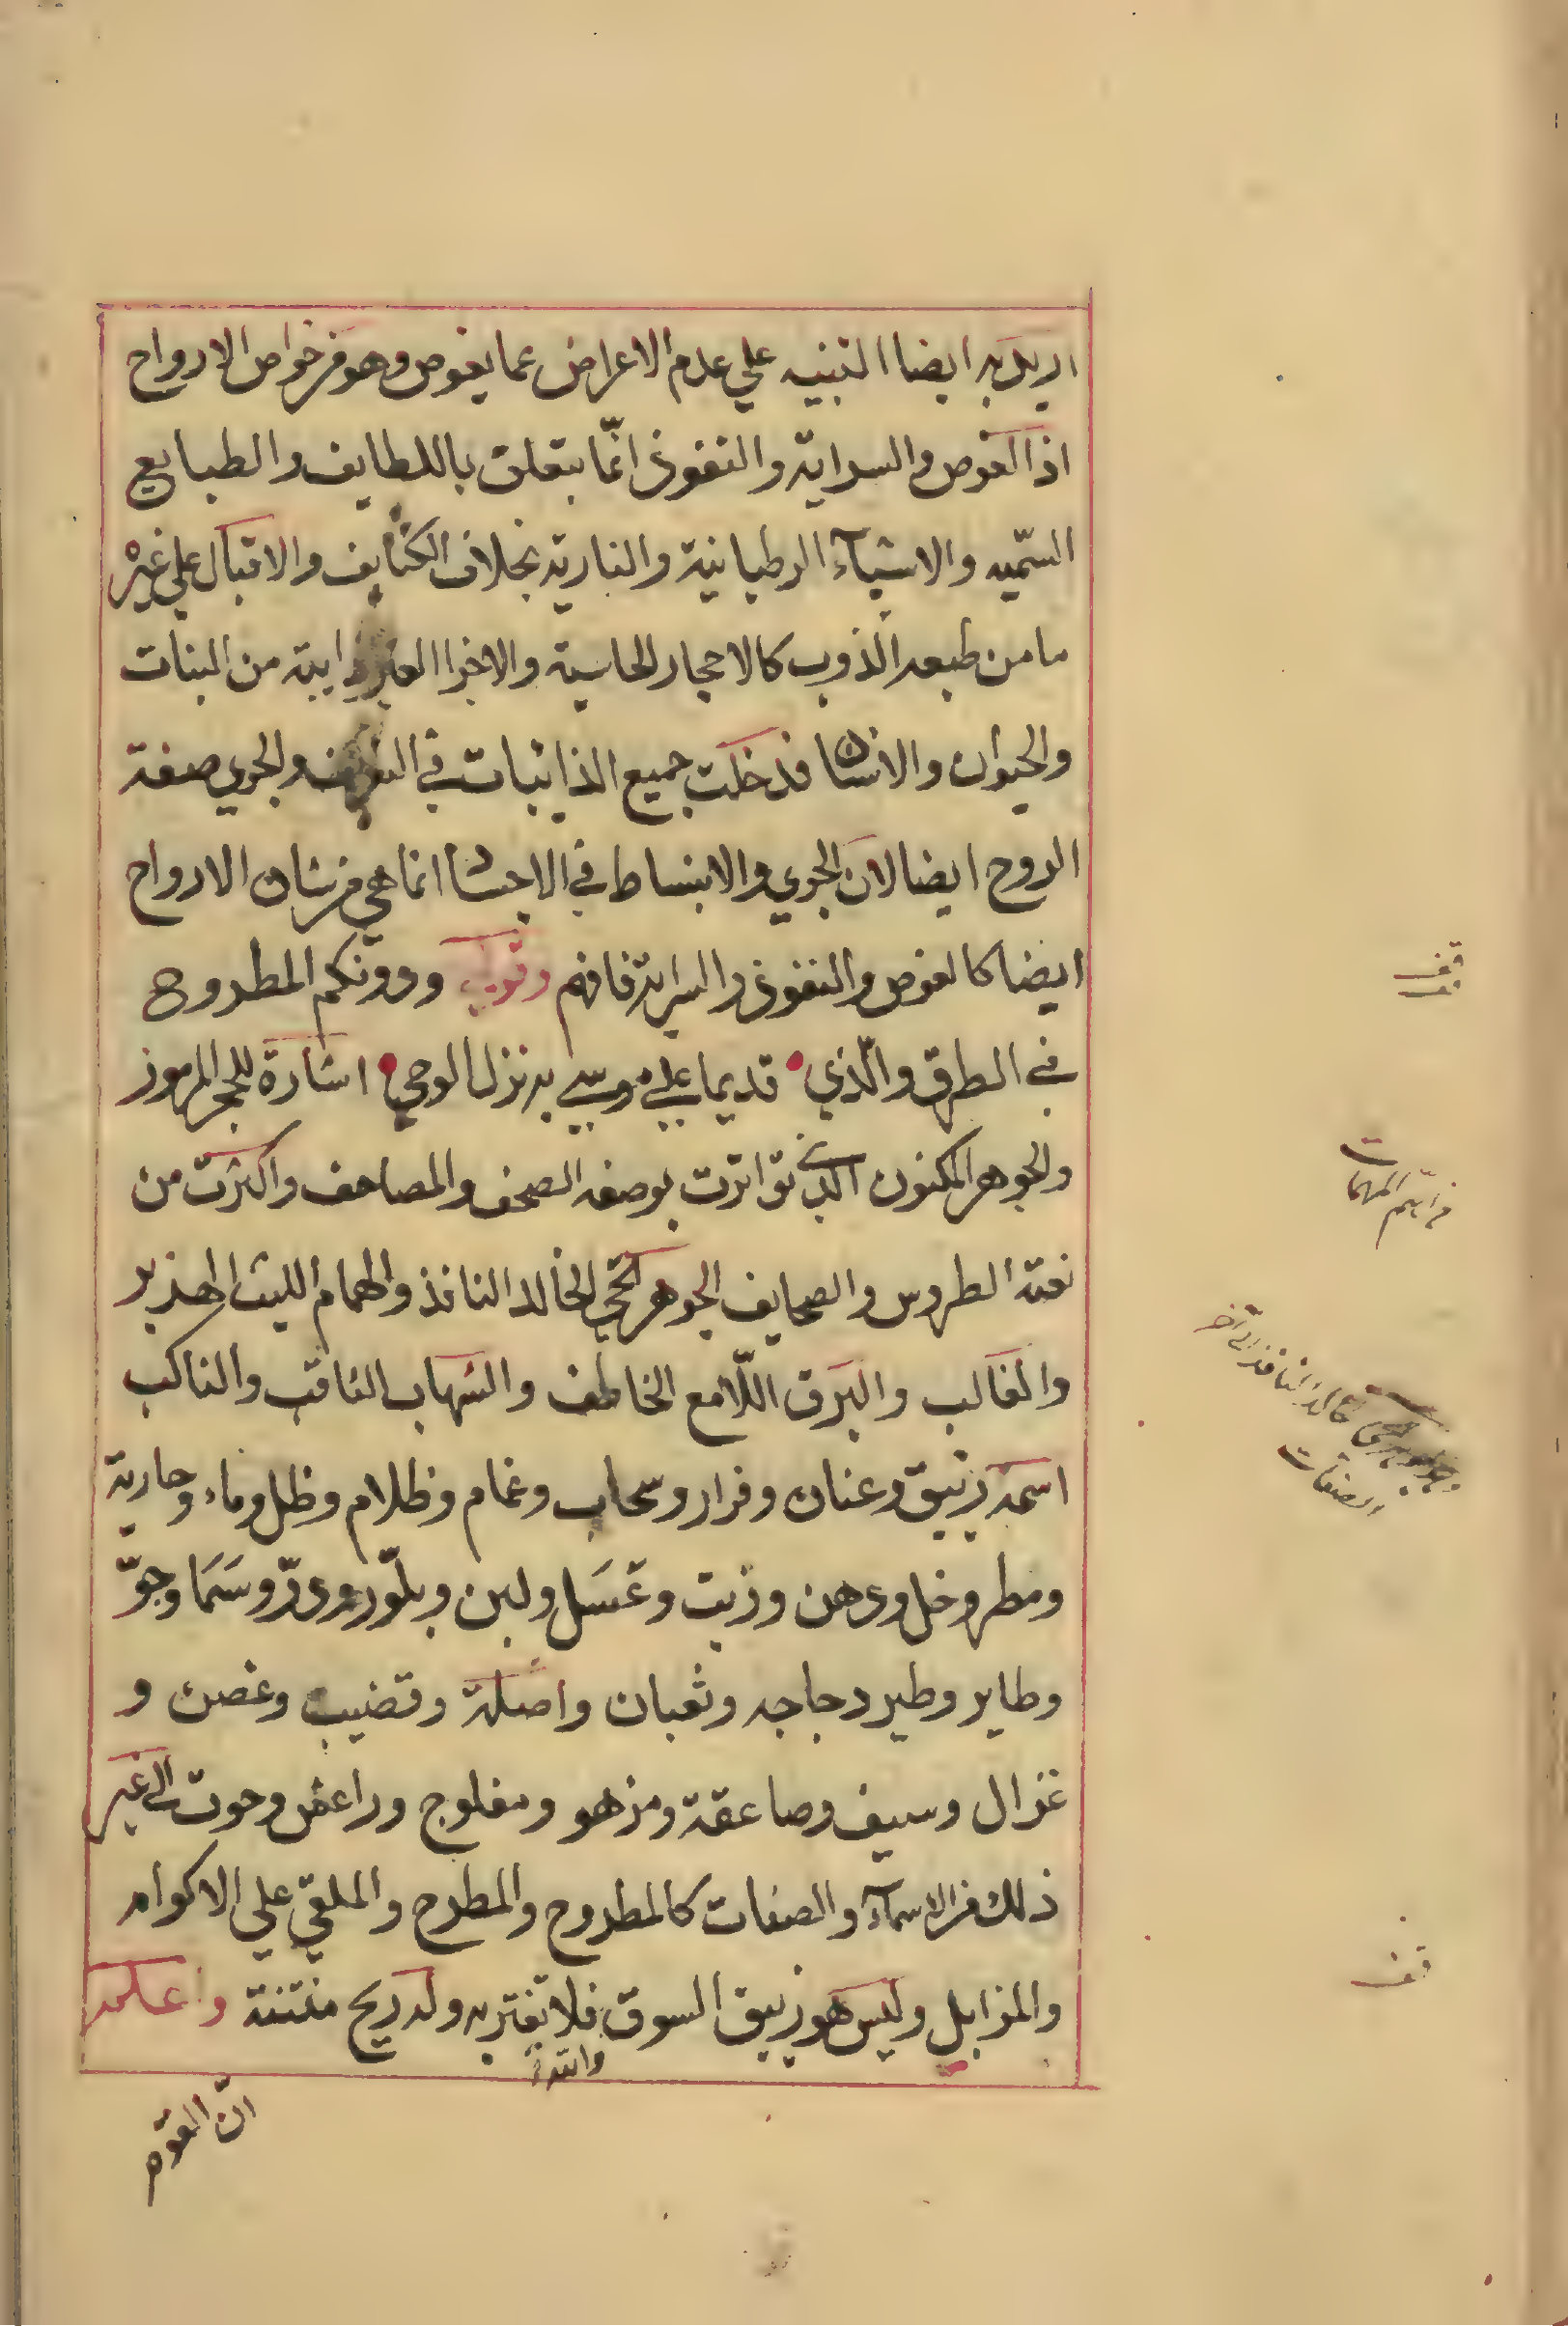 اريد به ايضا التنبيه علي عدم الاعراض عما يغوص وهو من خواص الارواح
اذ الغوص والسراية والنفوذ انّما يتعلق باللطايف والطبايع
السّميه والاشيآء الرطبانية والنارية بخلاف الكثايف والاقبال علي غير
ما من طبعه الذوب كالاحجار الحاسية والاجزا من النبات
والحيوان والانسان فدخلت جميع الذايبات في والجري صفة
الروح ايضا لان الجري والانبساط في الاجساد انما هي من شان الارواح
ايضا كالغوص والنفوذ والسراية فافهم وقوله ودونكم المطروح
في الطرق والّذي قديما علي موسي به نزل الوحي اشارة للحجر المرموز
والجوهر المكنون الذي تواترت بوصفه الصحف والمصاحف واكثرت من
نعته الطروس والصحايف الجوهر الحي الخالد النافذ والهمام الليث الهذبر
والغالب والبرق اللّامع الخاطف والشهاب الثاقب والناكب
اسمه زيبق وعنان وفرار وسحاب وغمام وظلام وظل وماء وجارية
ومطر وخل ودهن وزيت وعَسَل ولبن وبلّور ودرّ وسَمَا وجوّ
وطاير وطير دجاجه وثعبان واصلة وقضيب وغصن و
غزال وسيف وصاعقة ومزهو ومفلوج وراعش وحوت الي غير
ذلك من الاسمآء والصفات كالمطروح والمطرح والملقي علي الاكوام
والمزابل وليس هو زيبق السوق فلا تغتر به وله ريح منتنة واعلم
ان القوم
قف
من اهم المهمات
الخالد النافذ الي آخر
الصفات
قف